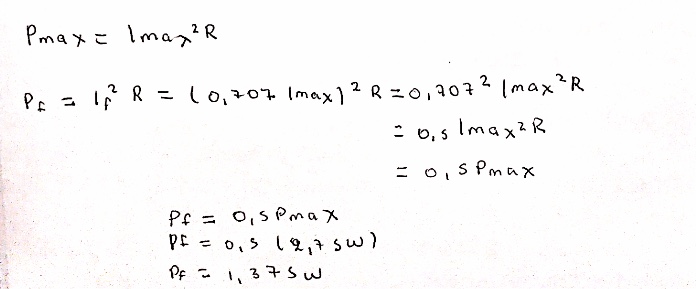 Pmax = Imax²R
Pf = If² R = (0,707 Imax)² R = 0,707² Imax²R
= 0,5 Imax²R
= 0,5 Pmax
Pf = 0,5 Pmax
Pf = 0,5 (2,75W)
Pf = 1,375W